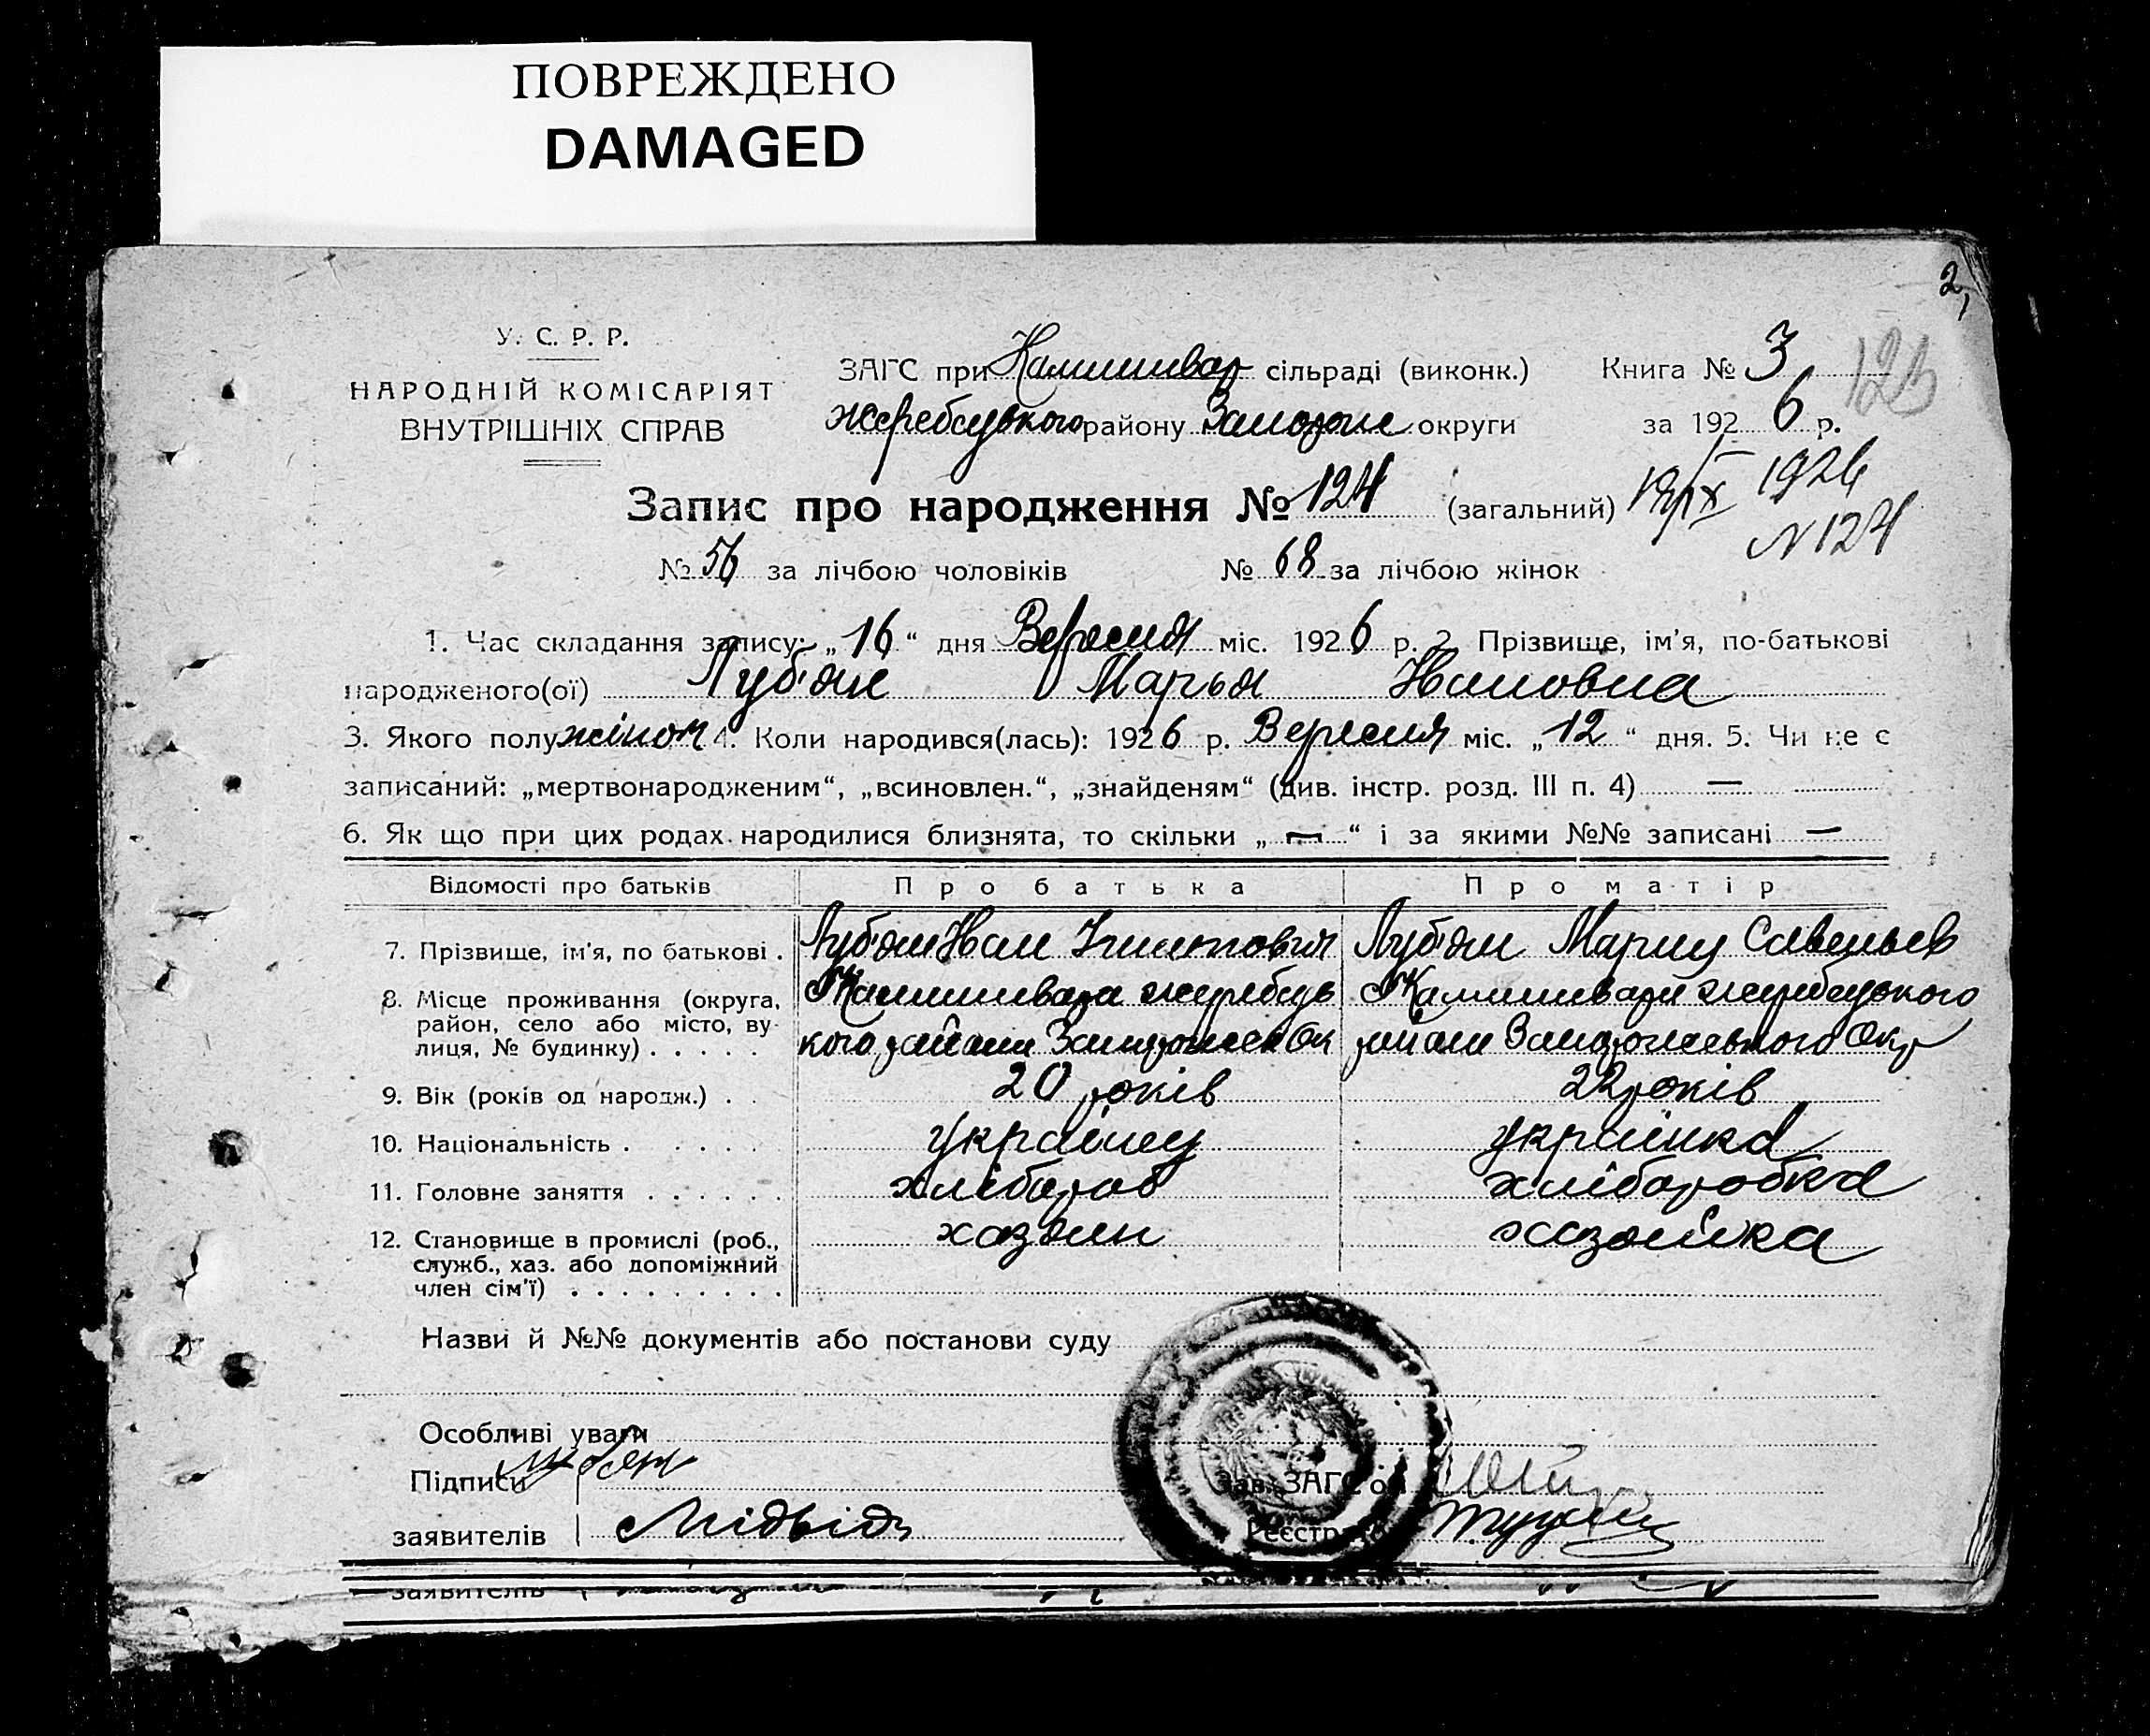 ПОВРЕЖДЕНО
DAMAGED
2
У. С. Р. Р.
НАРОДНІЙ КОМІСАРІЯТ
ВНУТРІШНІХ СПРАВ
ЗАГС при Камишивар сільраді (виконк.) Книга № 3 123
Жеребецького району Запорож округи за 1926 р.
Запис про народження № 124 (загальний) 1926
N 124
№ 56 за лічбою чоловіків № 68 за лічбою жінок
1. Час складання запису: „16“ дня Вересня міс. 1926 р. 2. Прізвище, ім'я, по-батькові
народженого(ої) Луб'ян Марья Ивановна
3. Якого полу жіноч 4. Коли народився(лась): 1926 р. Вересня міс. „12“ дня. 5. Чи не є
записаний: „мертвонародженим“, „всиновлен.“, „знайденям“ (див. інстр. розд. III п. 4) —
6. Як що при цих родах народилися близнята, то скільки „—“ і за якими №№ записані —
Відомості про батьків Про батька Про матір
7. Прізвище, ім'я, по батькові . Луб'ян Иван Луб'ян Савельев
8. Місце проживання (округа, район, село або місто, вулиця, № будинку) . . . . .
9. Вік (років од народж.) . . 20 років 22 років
10. Національність . . . . . українец українка
11. Головне заняття . . . . . . хлібороб хліборобка
12. Становище в промислі (роб., служб., хаз. або допоміжний член сім'ї) . . . . . . . . . хазяин хазяйка
Назви й №№ документів або постанови суду
Особливі уваги
Підписи
Зав. ЗАГС'ом
заявителів Мідвідь
Реєстратор
заявителів